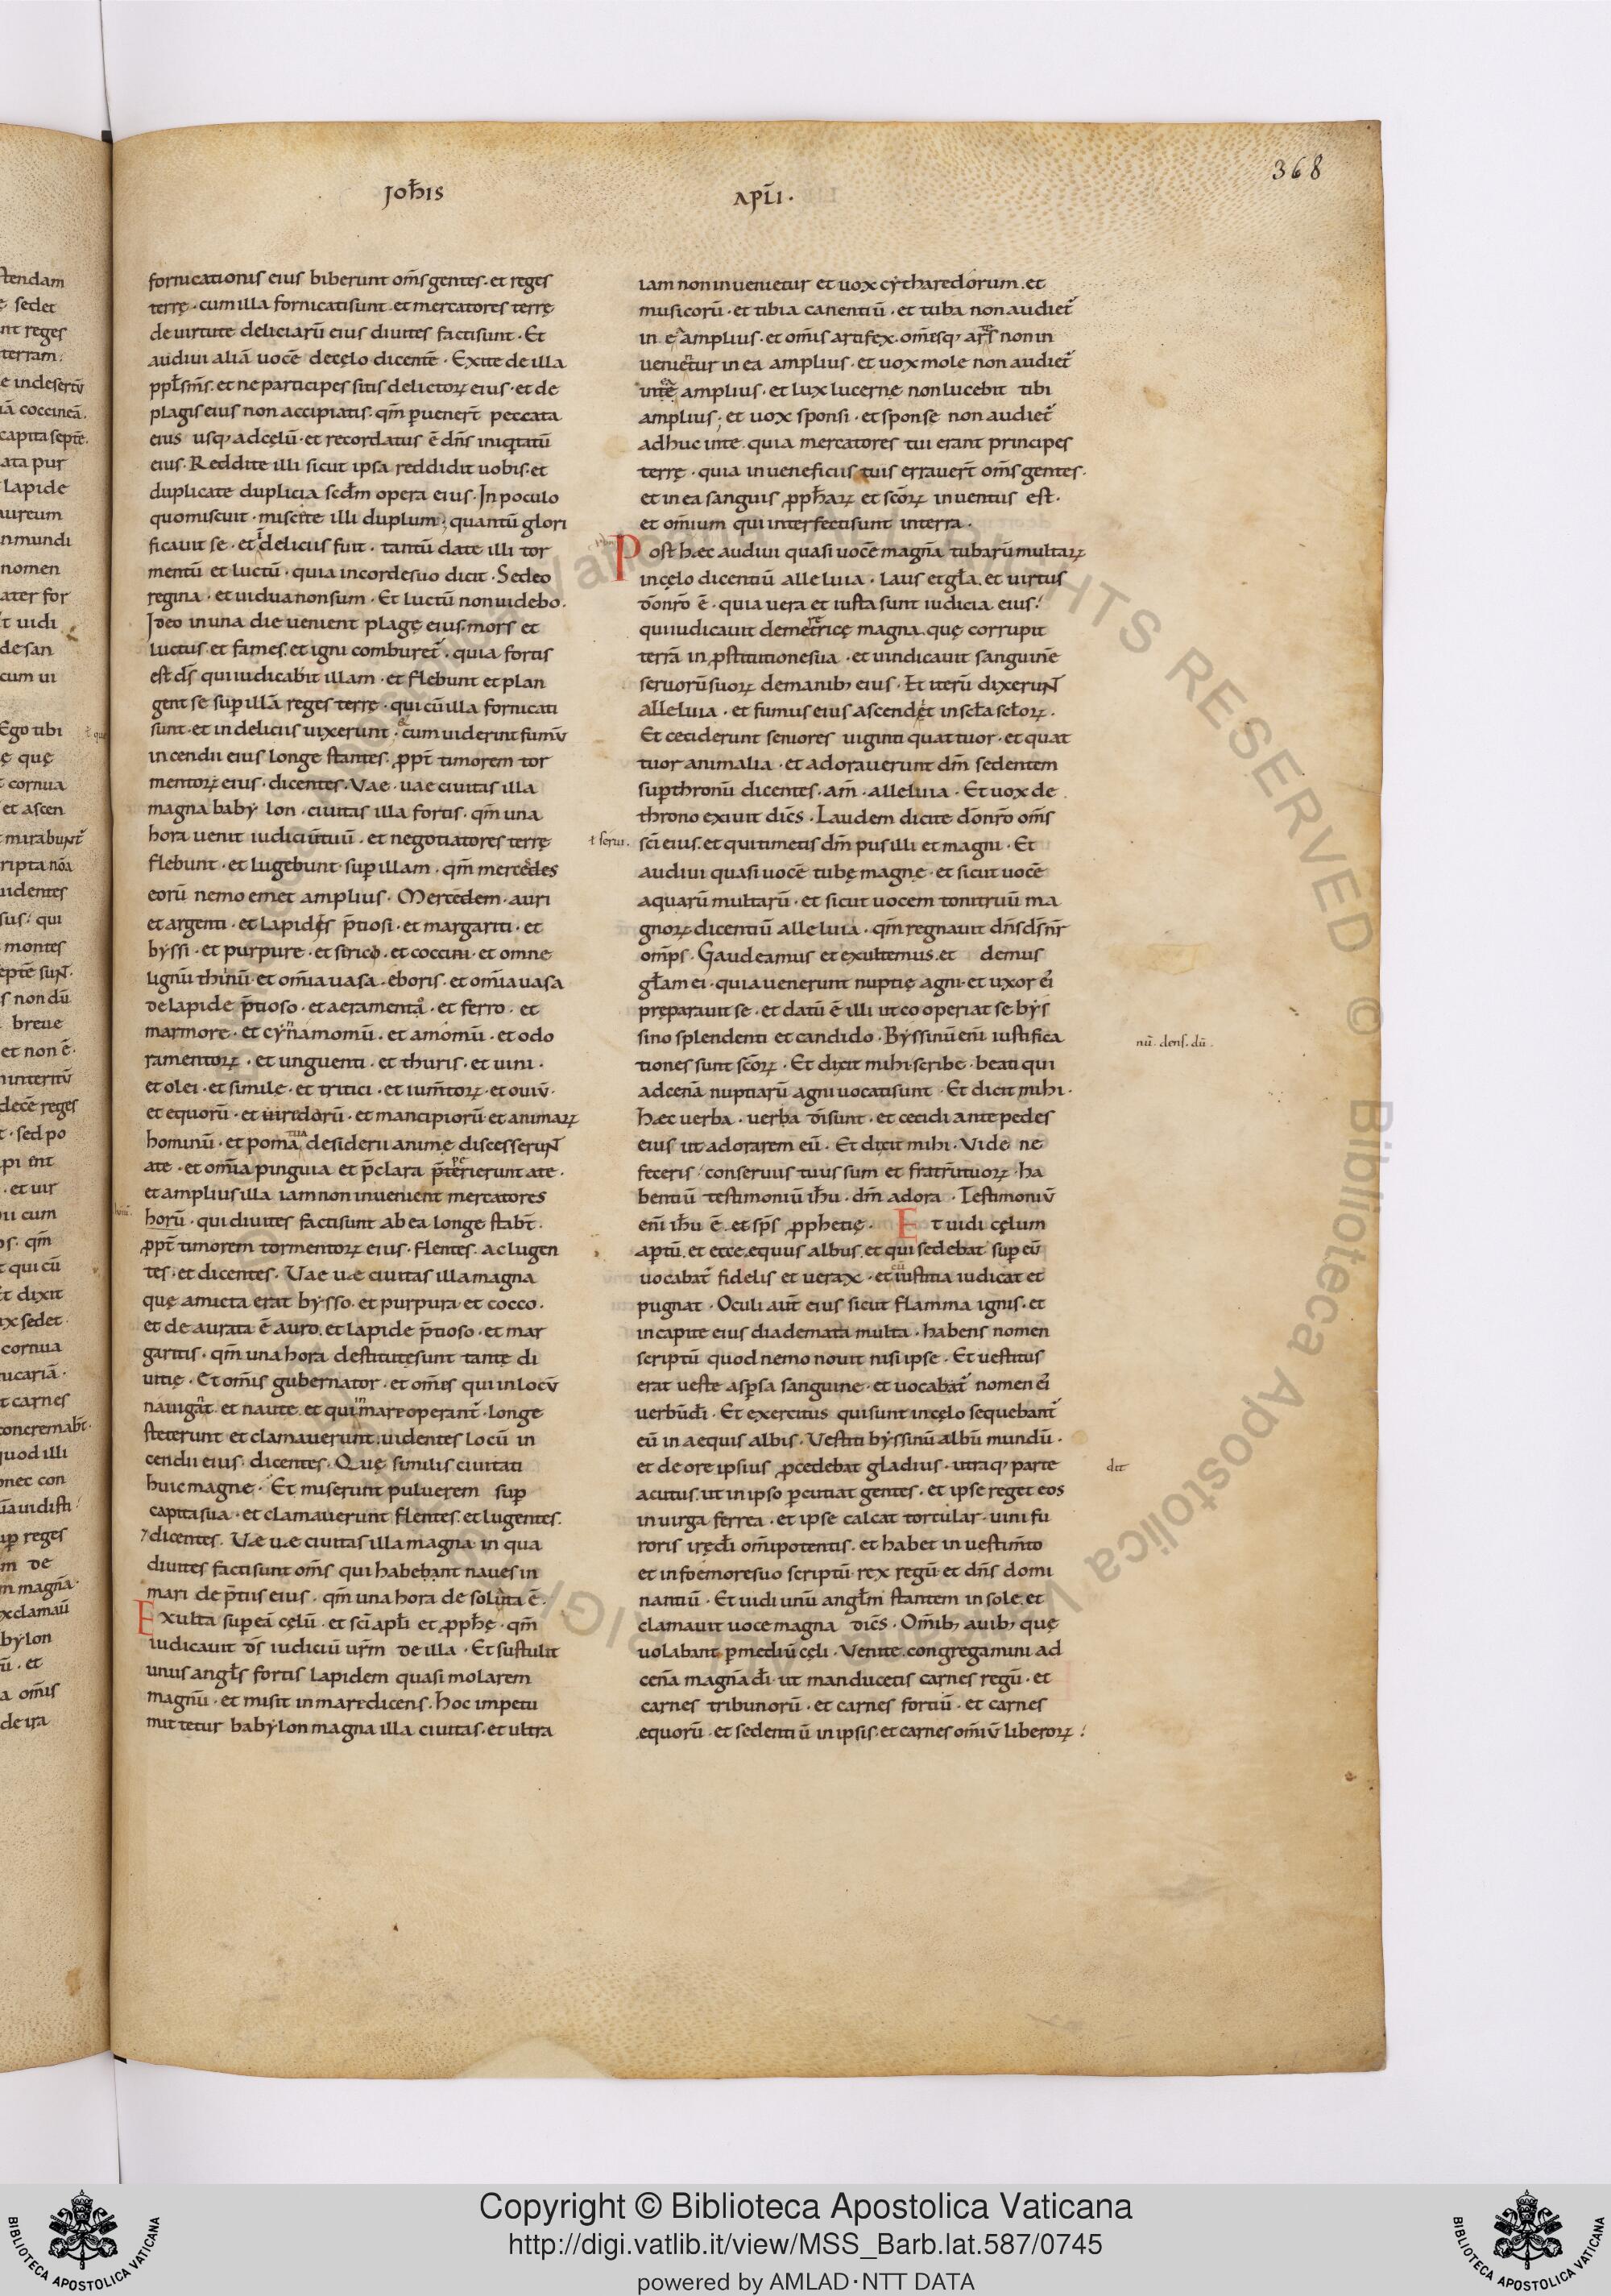 368
JOĦIS
APL̄I.
fornicationis eius biberunt om̄s gentes. et reges
terrę. cum illa fornicati sunt. et mercatores terrę
de uirtute deliciarū eius diuites facti sunt. Et
audiui aliā uocē de cęlo dicentē. Exite de illa
ppłs m̄s. et ne participes sitis delictoꝝ eius. et de
plagis eius non accipiatis. qm̄ puenert̄ peccata
eius usq; ad cęlū. et recordatus ē dn̄s iniq̇tatū
eius. Reddite illi sicut ipsa reddidit uobis. et
duplicate duplicia scđm opera eius. In poculo
quo miscuit. miscite illi duplum; quantū glori
ficauit se. et deliciis fuit. tantū date illi tor
mentū et luctū. quia in corde suo dicit. Sedeo
regina. et uidua non sum. Et luctū non uidebo.
Ideo in una die uenient plagę eius. mors et
luctus. et fames. et igni comburet̄. quia fortis
est dś qui iudicabit illam. et flebunt et plan
gent se sup illā reges terre. qui cū illa fornicati
sunt. et in deliciis uixerunt. cum uiderint fumū
incendii eius longe stantes. ꝓpt̄ timorem tor
mentoꝝ eius. dicentes. Vae. uae ciuitas illa
magna babylon. ciuitas illa fortis. qm̄ una
hora uenit iudiciū tuū. et negotiatores terrę
flebunt. et lugebunt. sup illam. qm̄ mercedes
eorū nemo emet amplius. Mercedem. auri
et argenti. et lapides p̄tiosi. et margariti. et
byssi. et purpure. et sirico. et coccini. et omne
lignū thinū. et om̄ia uasa. eboris. et om̄ia uasa
de lapide p̄tioso. et aeramento. et ferro. et
marmore. et cynamomū. et amomū. et odo
ramentoꝝ. et unguenti. et thuris. et uini.
et olei. et simile. et tritici. et ium̄toꝝ. et ouiū.
et equorū. et uiridorū. et mancipiorū. et animaꝝ
hominū. et poma tua desiderii anime discesserunt
a te. et om̄ia pinguia et p̄clara p̄terierunt a te.
et amplius illa iam non inuenient mercatores
horū. qui diuites facti sunt ab ea longe stabt̄.
ꝓpt̄ timorem tormentoꝝ eius. flentes. ac lugen
tes. et dicentes. Uae uę ciuitas illa magna
quę amicta erat bysso. et purpura. et cocco.
et de aurata ē auro. et lapide p̄tioso. et mar
garitis. qm̄ una hora destitutę sunt tantę di
uitię. Et om̄is gubernator. et om̄es qui in locū
nauigat. et naute. et qui in mare operant̄. longe
steterunt et clamauerunt. uidentes locū in
cendii eius. dicentes. Quę similis ciuitati
huic magne. Et miserunt puluerem sup
capita sua. et clamauerunt flentes. et lugentes.
⁊ dicentes. Uę uę ciuitas illa magna. in qua
diuites facti sunt om̄s qui habebant naues in
mari de p̄tiis eius. qm̄ una hora desoluta ē.
Exulta sup eā cęlū. et sc̄i apłi et ꝓpħę. qm̄
iudicauit dś iudiciū ur̄m de illa. Et sustulit
unus angłs fortis lapidem quasi molarem
magnū. et misit in mare dicens. Hoc impetu
mittetur babylon magna illa ciuitas. et ultra
iam non inuenietur et uox cytharedorum. et
musicorū. et tibia canentiū. et tuba non audiet̄
in ea amplius. et om̄is artifex. om̄esq; artes non in
uenietur in ea amplius. et uox mole non audiet̄
in te amplius. et lux lucerne non lucebit tibi
amplius; et uox sponsi. et sponse non audiet̄
adhuc in te. quia mercatores tui erant principes
terrę. quia in ueneficiis tuis errauert̄ om̄s gentes.
et in ea sanguis ꝓpħaꝝ et sc̄oꝝ inuentus est.
et om̄ium qui interfecti sunt in terra.
Post hæc audiui quasi uocē magn̄a tubarū multaꝝ
in cęlo dicentiū alleluia. laus et gła. et uirtus
dō nr̄o ē. quia uera et iusta sunt iudicia eius.
qui iudicauit de meretricę magna. quę corrupit
terrā in ꝓstitutione sua. et uindicauit sanguinē
seruorū suoꝝ de manib; eius. Et iterū dixerunt
alleluia. et fumus eius ascendet in scła scłoꝝ.
Et ceciderunt seniores uiginti quattuor. et quat
tuor animalia. et adorauerunt dm̄ sedentem
sup thronū dicentes. am̄. alleluia. Et uox de
throno exiuit dic̄s. Laudem dicite dō nr̄o om̄s
ł serui.
sc̄i eius. et qui timetis dm̄ pusilli et magni. Et
audiui quasi uocē tubę magnę. et sicut uocē
aquarū multarū. et sicut uocem tonitruū ma
gnoꝝ dicentiū alleluia. qm̄ regnauit dn̄s dś nr̄
om̄ps. Gaudeamus et exultemus. et demus
głam ei. quia uenerunt nuptię agni. et uxor ei
pręparauit se. et datū ē illi ut cooperiat se bys
sino splendenti et candido. Byssinū eni iustifica
tiones sunt sc̄oꝝ. Et dixit mihi. scribe. beati qui
ad cenā nuptiarū agni uocati sunt. Et dicit mihi.
Hæc uerba. uerba di sunt. et cecidi ante pedes
eius ut adorarem eū. Et dixit mihi. Vide ne
feceris. conseruus tuus sum et fratrū tuoꝝ. ha
bentiū testimoniū iħu. dm̄ adora. Testimoniū
eni iħu ē. et sps̄ ꝓphetię. Et uidi cęlum
aptū. et ecce equus albus. et qui sedebat sup eū
uocabat̄ fidelis et uerax. et iustitia iudicat et
pugnat. Oculi aut̄ eius sicut flamma ignis. et
in capite eius diademata multa. habens nomen
scriptū quod nemo nouit nisi ipse. Et uestitus
erat ueste aspsa sanguine. et uocabat̄ nomen ei
uerbū đi. Et exercitus qui sunt in cęlo sequebant̄
eū in aequis albis. Vestiti byssinū albū mundū.
et de ore ipsius ꝓcedebat gladius. utraq; parte
acutus. ut in ipso pcutiat gentes. et ipse reget eos
in uirga ferrea. et ipse calcat torcular. uini fu
roris irę đi om̄ipotentis. et habet in uestim̄to
et in foemore suo scriptū. rex regū et dn̄s domi
nantiū. Et uidi unū angłm stantem in sole. et
clamauit uoce magna dic̄s. Om̄ib; auib; quę
uolabant p mediū cęli. Venite. congregamini ad
cenā magnā đi. ut manducetis carnes regū. et
carnes tribunorū. et carnes fortiū. et carnes
equorū. et sedentiū in ipsis. et carnes om̄iū liberoꝝ.
nū. dens. dū.
dit
Copyright © Biblioteca Apostolica Vaticana
http://digi.vatlib.it/view/MSS_Barb.lat.587/0745
powered by AMLAD·NTT DATA
BIBLIOTECA APOSTOLICA VATICANA
BIBLIOTECA APOSTOLICA VATICANA